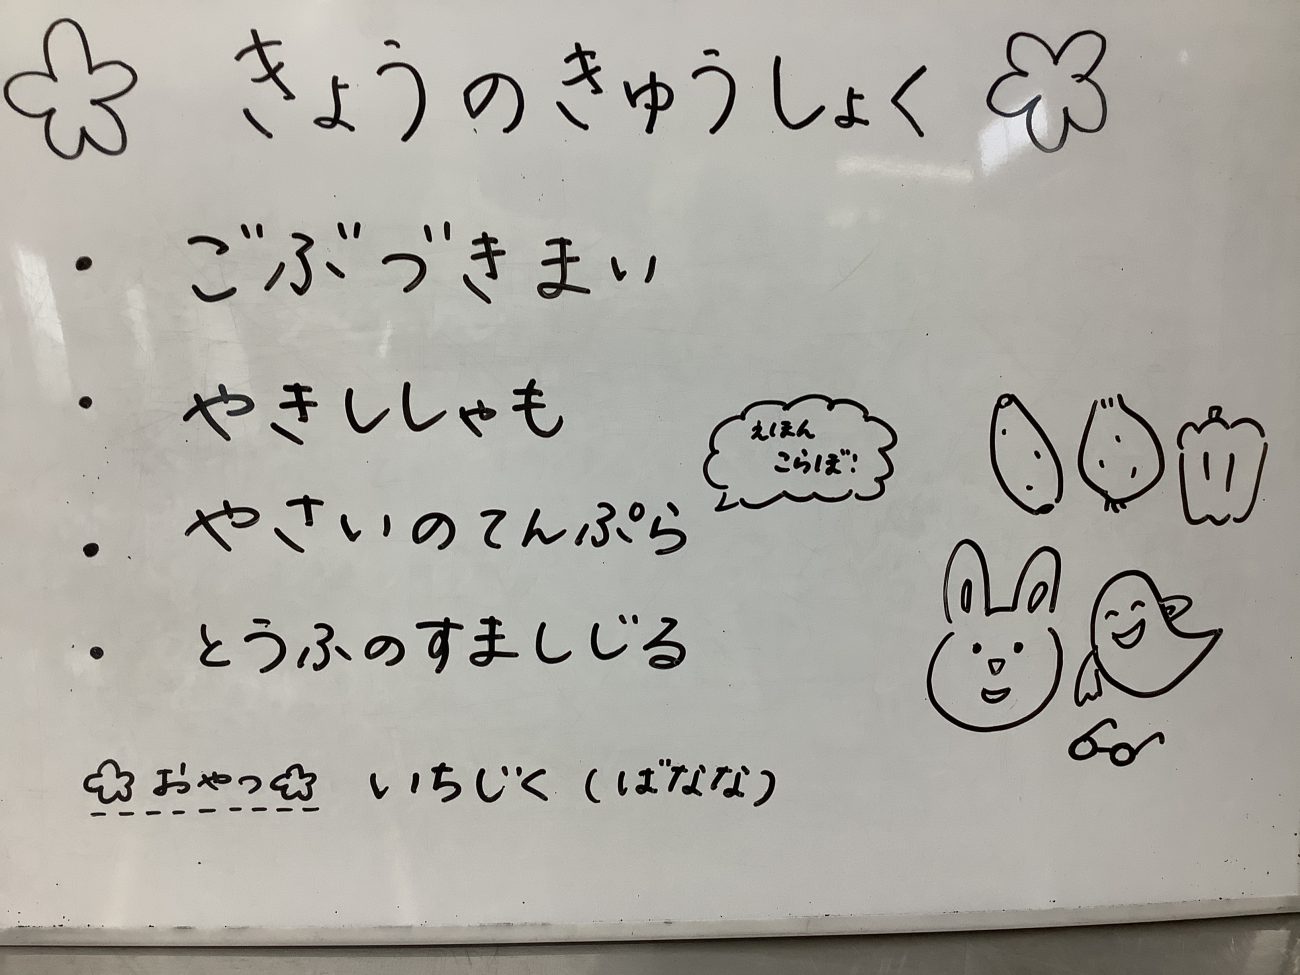 きょうのきゅうしょく
・ ごぶづきまい
・ やきししゃも
えほん
こらぼ!
・ やさいのてんぷら
・ とうふのすましじる
おやつ いちじく (ばなな)